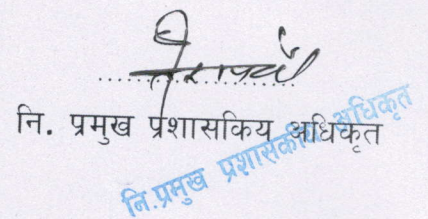 नि. प्रमुख प्रशासकिय अधिकृत
नि.प्रमुख प्रशासकीय अधिकृत